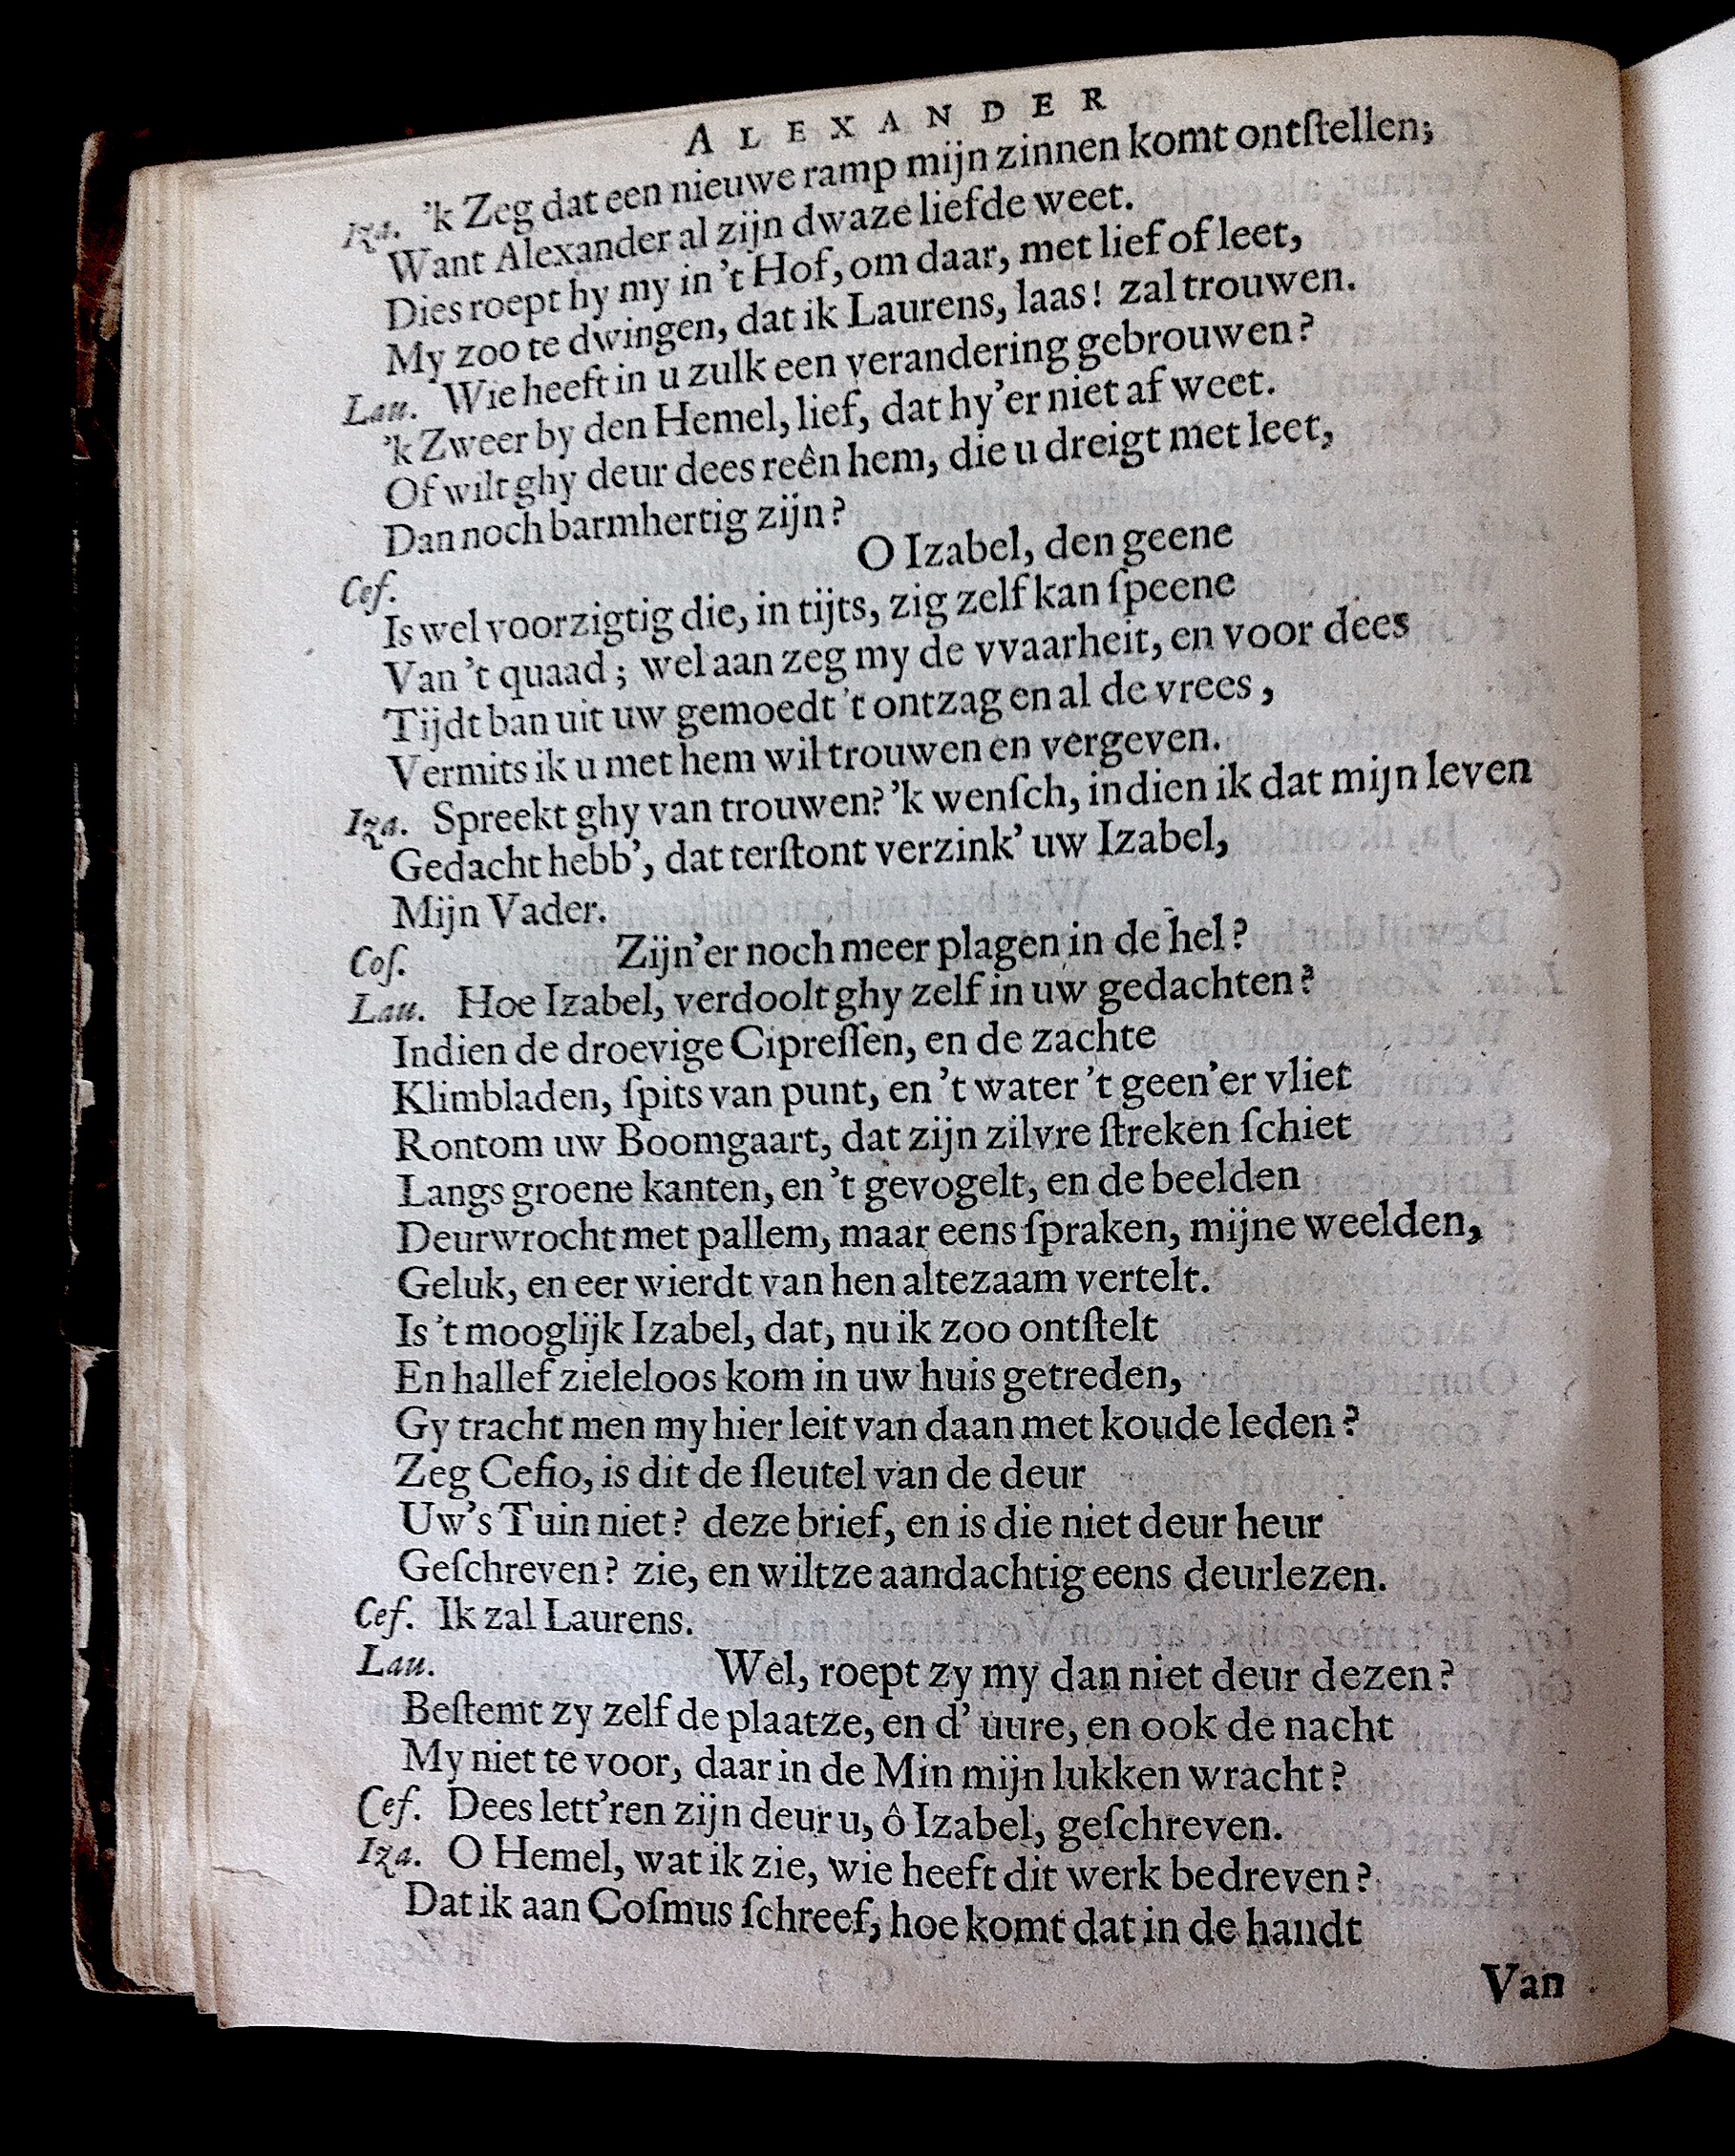 ALEXANDER
Iza. ’k Zeg dat een nieuwe ramp mijn zinnen komt ontſtellen;
Want Alexander al zijn dwaze liefde weet.
Dies roept hy my in ’t Hof, om daar, met lief of leet,
My zoo te dwingen, dat ik Laurens, laas! zal trouwen.
Lau. Wie heeft in u zulk een verandering gebrouwen?
’k Zweer by den Hemel, lief, dat hy’er niet af weet.
Of wilt ghy deur dees reên hem, die u dreigt met leet,
Dan noch barmhertig zijn?
Ceſ. O Izabel, den geene
Is wel voorzigtig die, in tijts, zig zelf kan ſpeene
Van ’t quaad; wel aan zeg my de vvaarheit, en voor dees
Tijdt ban uit uw gemoedt ’t ontzag en al de vrees,
Vermits ik u met hem wil trouwen en vergeven.
Iza. Spreekt ghy van trouwen? ’k wenſch, indien ik dat mijn leven
Gedacht hebb’, dat terſtont verzink’ uw Izabel,
Mijn Vader.
Coſ. Zijn’er noch meer plagen in de hel?
Lau. Hoe Izabel, verdoolt ghy zelf in uw gedachten?
Indien de droevige Cipreſſen, en de zachte
Klimbladen, ſpits van punt, en ’t water ’t geen’er vliet
Rontom uw Boomgaart, dat zijn zilvre ſtreken ſchiet
Langs groene kanten, en ’t gevogelt, en de beelden
Deurwrocht met pallem, maar eens ſpraken, mijne weelden,
Geluk, en eer wierdt van hen altezaam vertelt.
Is ’t mooglijk Izabel, dat, nu ik zoo ontſtelt
En hallef zieleloos kom in uw huis getreden,
Gy tracht men my hier leit van daan met koude leden?
Zeg Ceſio, is dit de ſleutel van de deur
Uw’s Tuin niet? deze brief, en is die niet deur heur
Geſchreven? zie, en wiltze aandachtig eens deurlezen.
Ceſ. Ik zal Laurens.
Lau. Wel, roept zy my dan niet deur dezen?
Beſtemt zy zelf de plaatze, en d’ uure, en ook de nacht
My niet te voor, daar in de Min mijn lukken wracht?
Ceſ. Dees lett’ren zijn deur u, ô Izabel, geſchreven.
Iza. O Hemel, wat ik zie, wie heeft dit werk bedreven?
Dat ik aan Coſmus ſchreef, hoe komt dat in de handt
Van